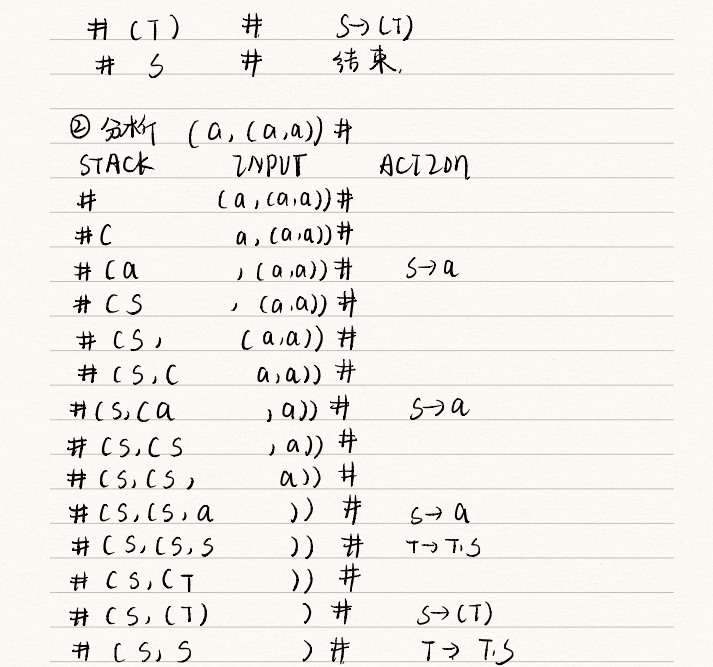 # (T) # S→(T)
# S # 结束.
② 分析 (a,(a,a))#
STACK INPUT ACTION
# (a,(a,a))#
#( a,(a,a))#
#(a ,(a,a))# S→a
#(S ,(a,a))#
#(S, (a,a))#
#(S,( a,a))#
#(S,(a ,a))# S→a
#(S,(S ,a))#
#(S,(S, a))#
#(S,(S,a ))# S→a
#(S,(S,S ))# T→T,S
#(S,(T ))#
#(S,(T) )# S→(T)
#(S,S )# T→T,S